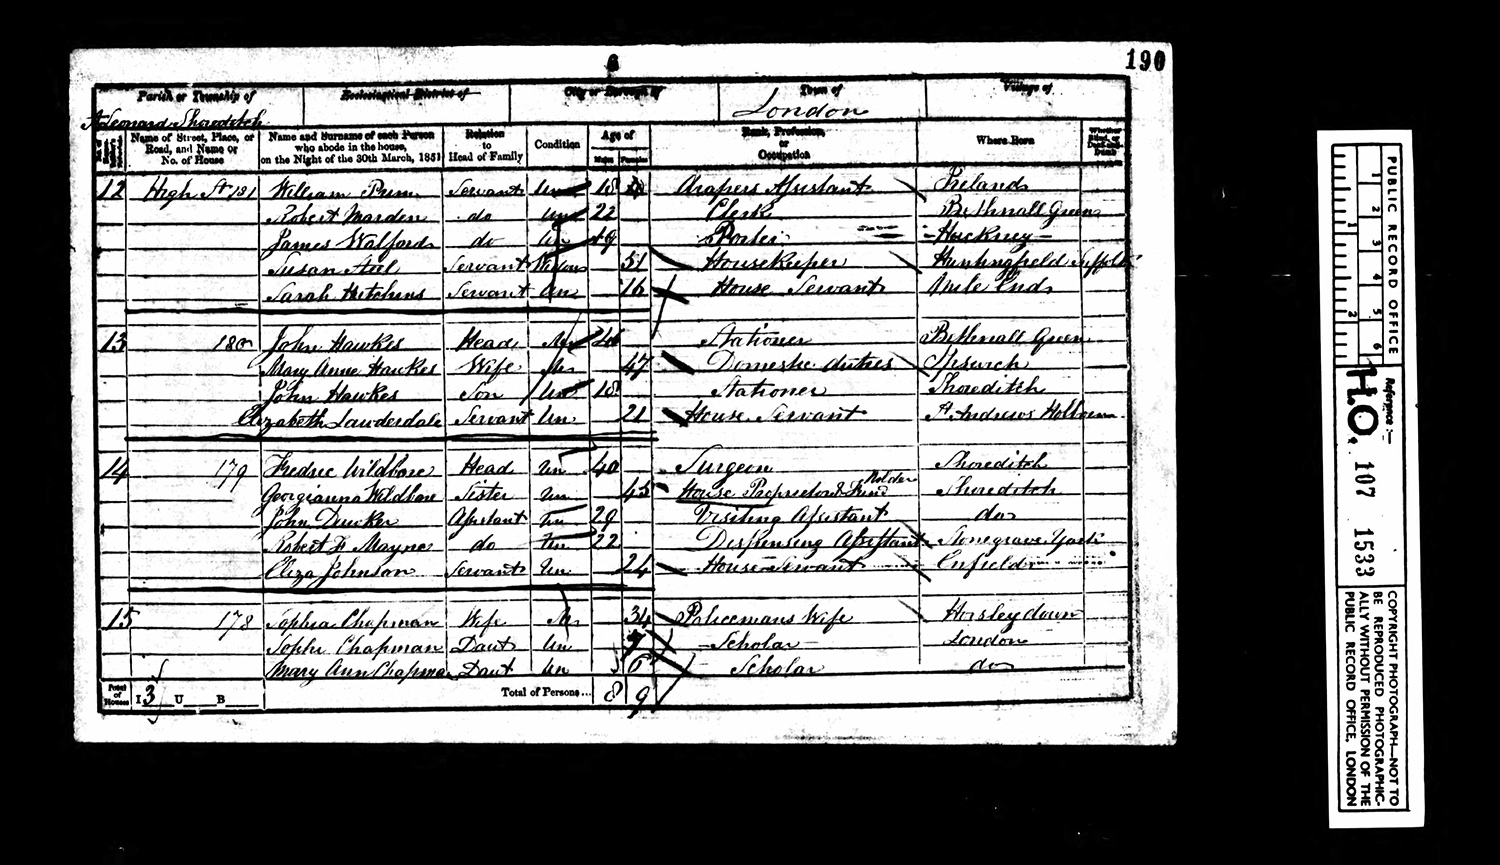 6
190
Parish or Township of
Ecclesiastical District of
City or Borough of
Town of
Village of
St Leonard Shoreditch
London
Name of Street, Place, or Road, and Name or No. of House
Name and Surname of each Person who abode in the house, on the Night of the 30th March, 1851
Relation to Head of Family
Condition
Age of
Males
Females
Rank, Profession, or Occupation
Where Born
Whether Blind, or Deaf-and-Dumb
12 High St 181 William Servant Un 18 Drapers Assistant Ireland
Robert Marden do Un 22 Clerk Bethnall Green
James Walford do Un 49 Porter Hackney
Susan Servant Widow 51 Housekeeper Huntingfield Suffolk
Sarah Hutchins Servant Un 16 House Servant Mile End
13 180 John Hawkes Head Mar 46 Stationer Bethnall Green
Mary Anne Hawkes Wife Mar 47 Domestic duties Ipswich
John Hawkes Son Un 18 Stationer Shoreditch
Elizabeth Lauderdale Servant Un 21 House Servant St Andrews Holborn
14 179 Fredric Wildbore Head Un 40 Surgeon Shoreditch
Georgianna Wildbore Sister Un 45 House Proprietor & Fund Holder Shoreditch
John Assistant Un 29 Visiting Assistant do
Robert F Mayne do Un 22 Dispensing Assistant Stonegrave York
Eliza Johnson Servant Un 24 House Servant Enfield
15 178 Sophia Chapman Wife Mar 34 Policemans Wife Horsleydown
Chapman Daut Un 7 Scholar London
Mary Ann Chapman Daut Un Scholar do
Total of Houses I 3 U B Total of Persons... 8 9
PUBLIC RECORD OFFICE
1 2 3 4 5 6
1 2
Reference:-
H.O. 107 1533
COPYRIGHT PHOTOGRAPH—NOT TO
BE REPRODUCED PHOTOGRAPHIC-
ALLY WITHOUT PERMISSION OF THE
PUBLIC RECORD OFFICE, LONDON